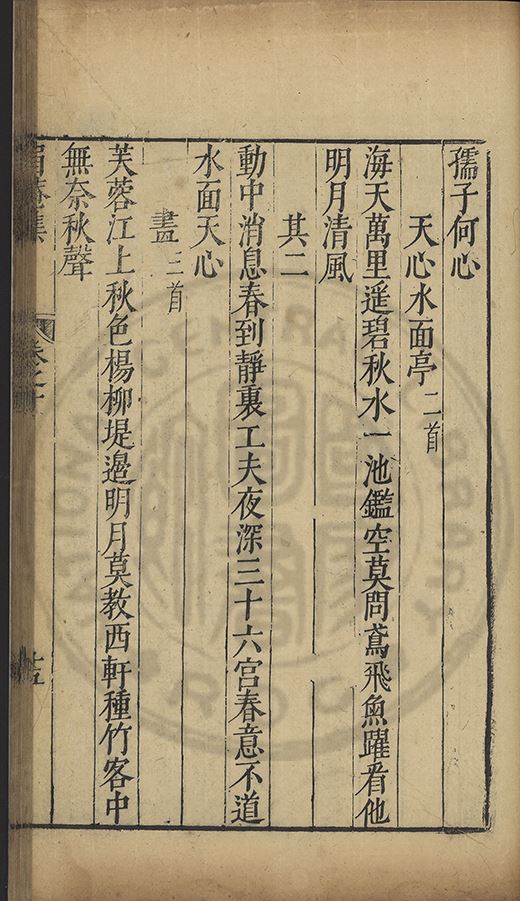 孺子何心
天心水面亭二首
海天萬里遥碧秋水一池鑑空莫問鳶飛魚躍看他
明月清風
其二
動中消息春到靜裏工夫夜深三十六宮春意不道
水面天心
畫二首
芙蓉江上秋色楊柳堤邉明月莫教西軒種竹客中
無奈秋聲
卷之十